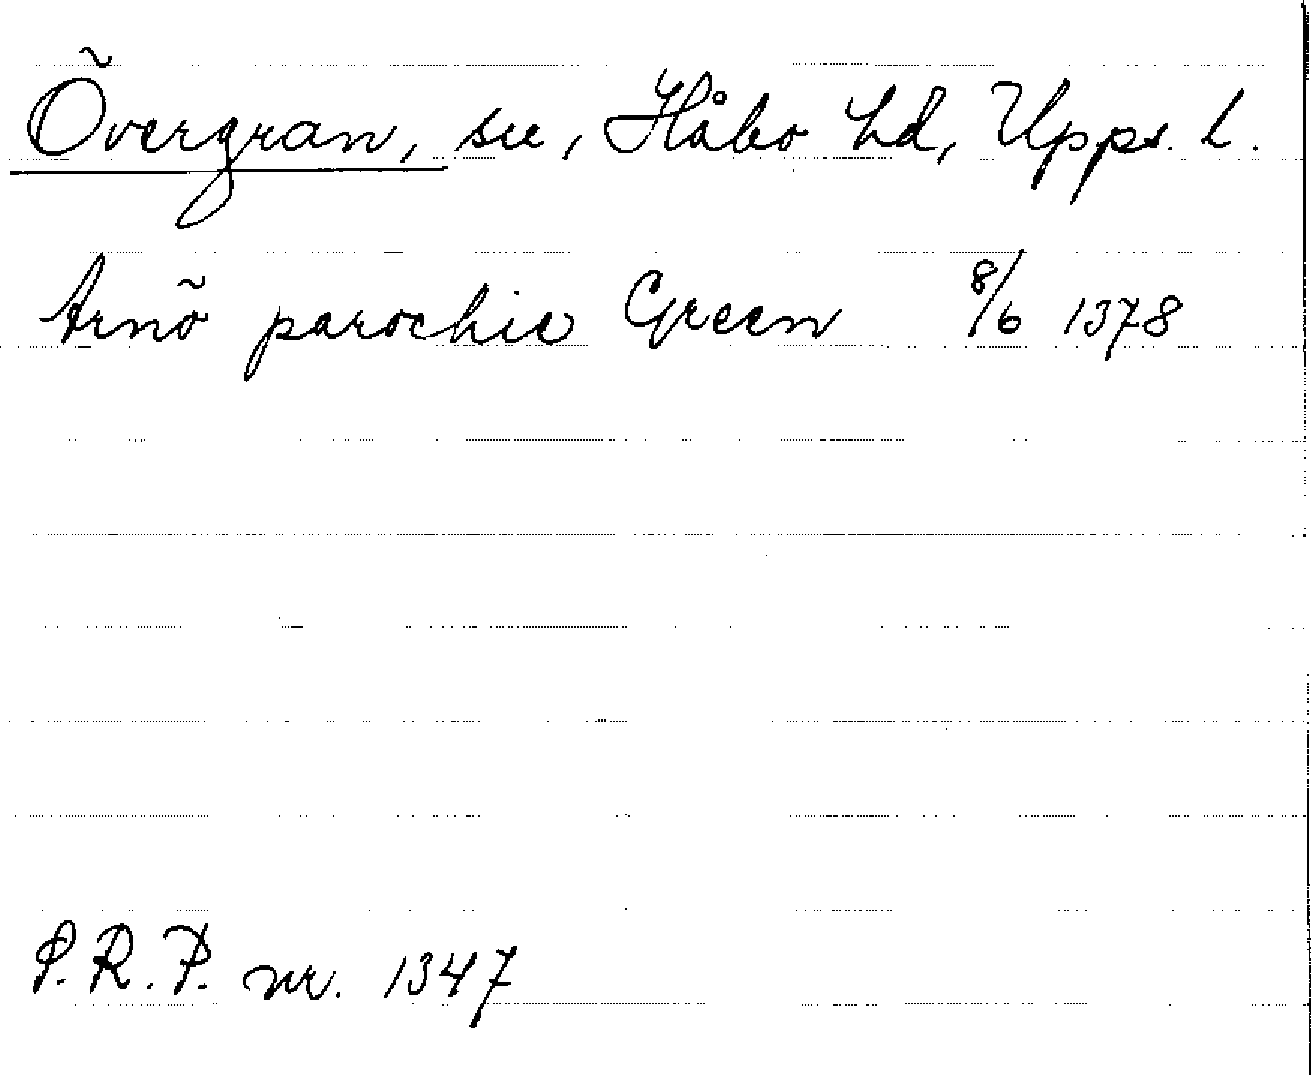 Övergran, sn, Håbo hd, Upps. l.
Arnö parochie Green 8/6 1378
S.R.P. nr. 1347